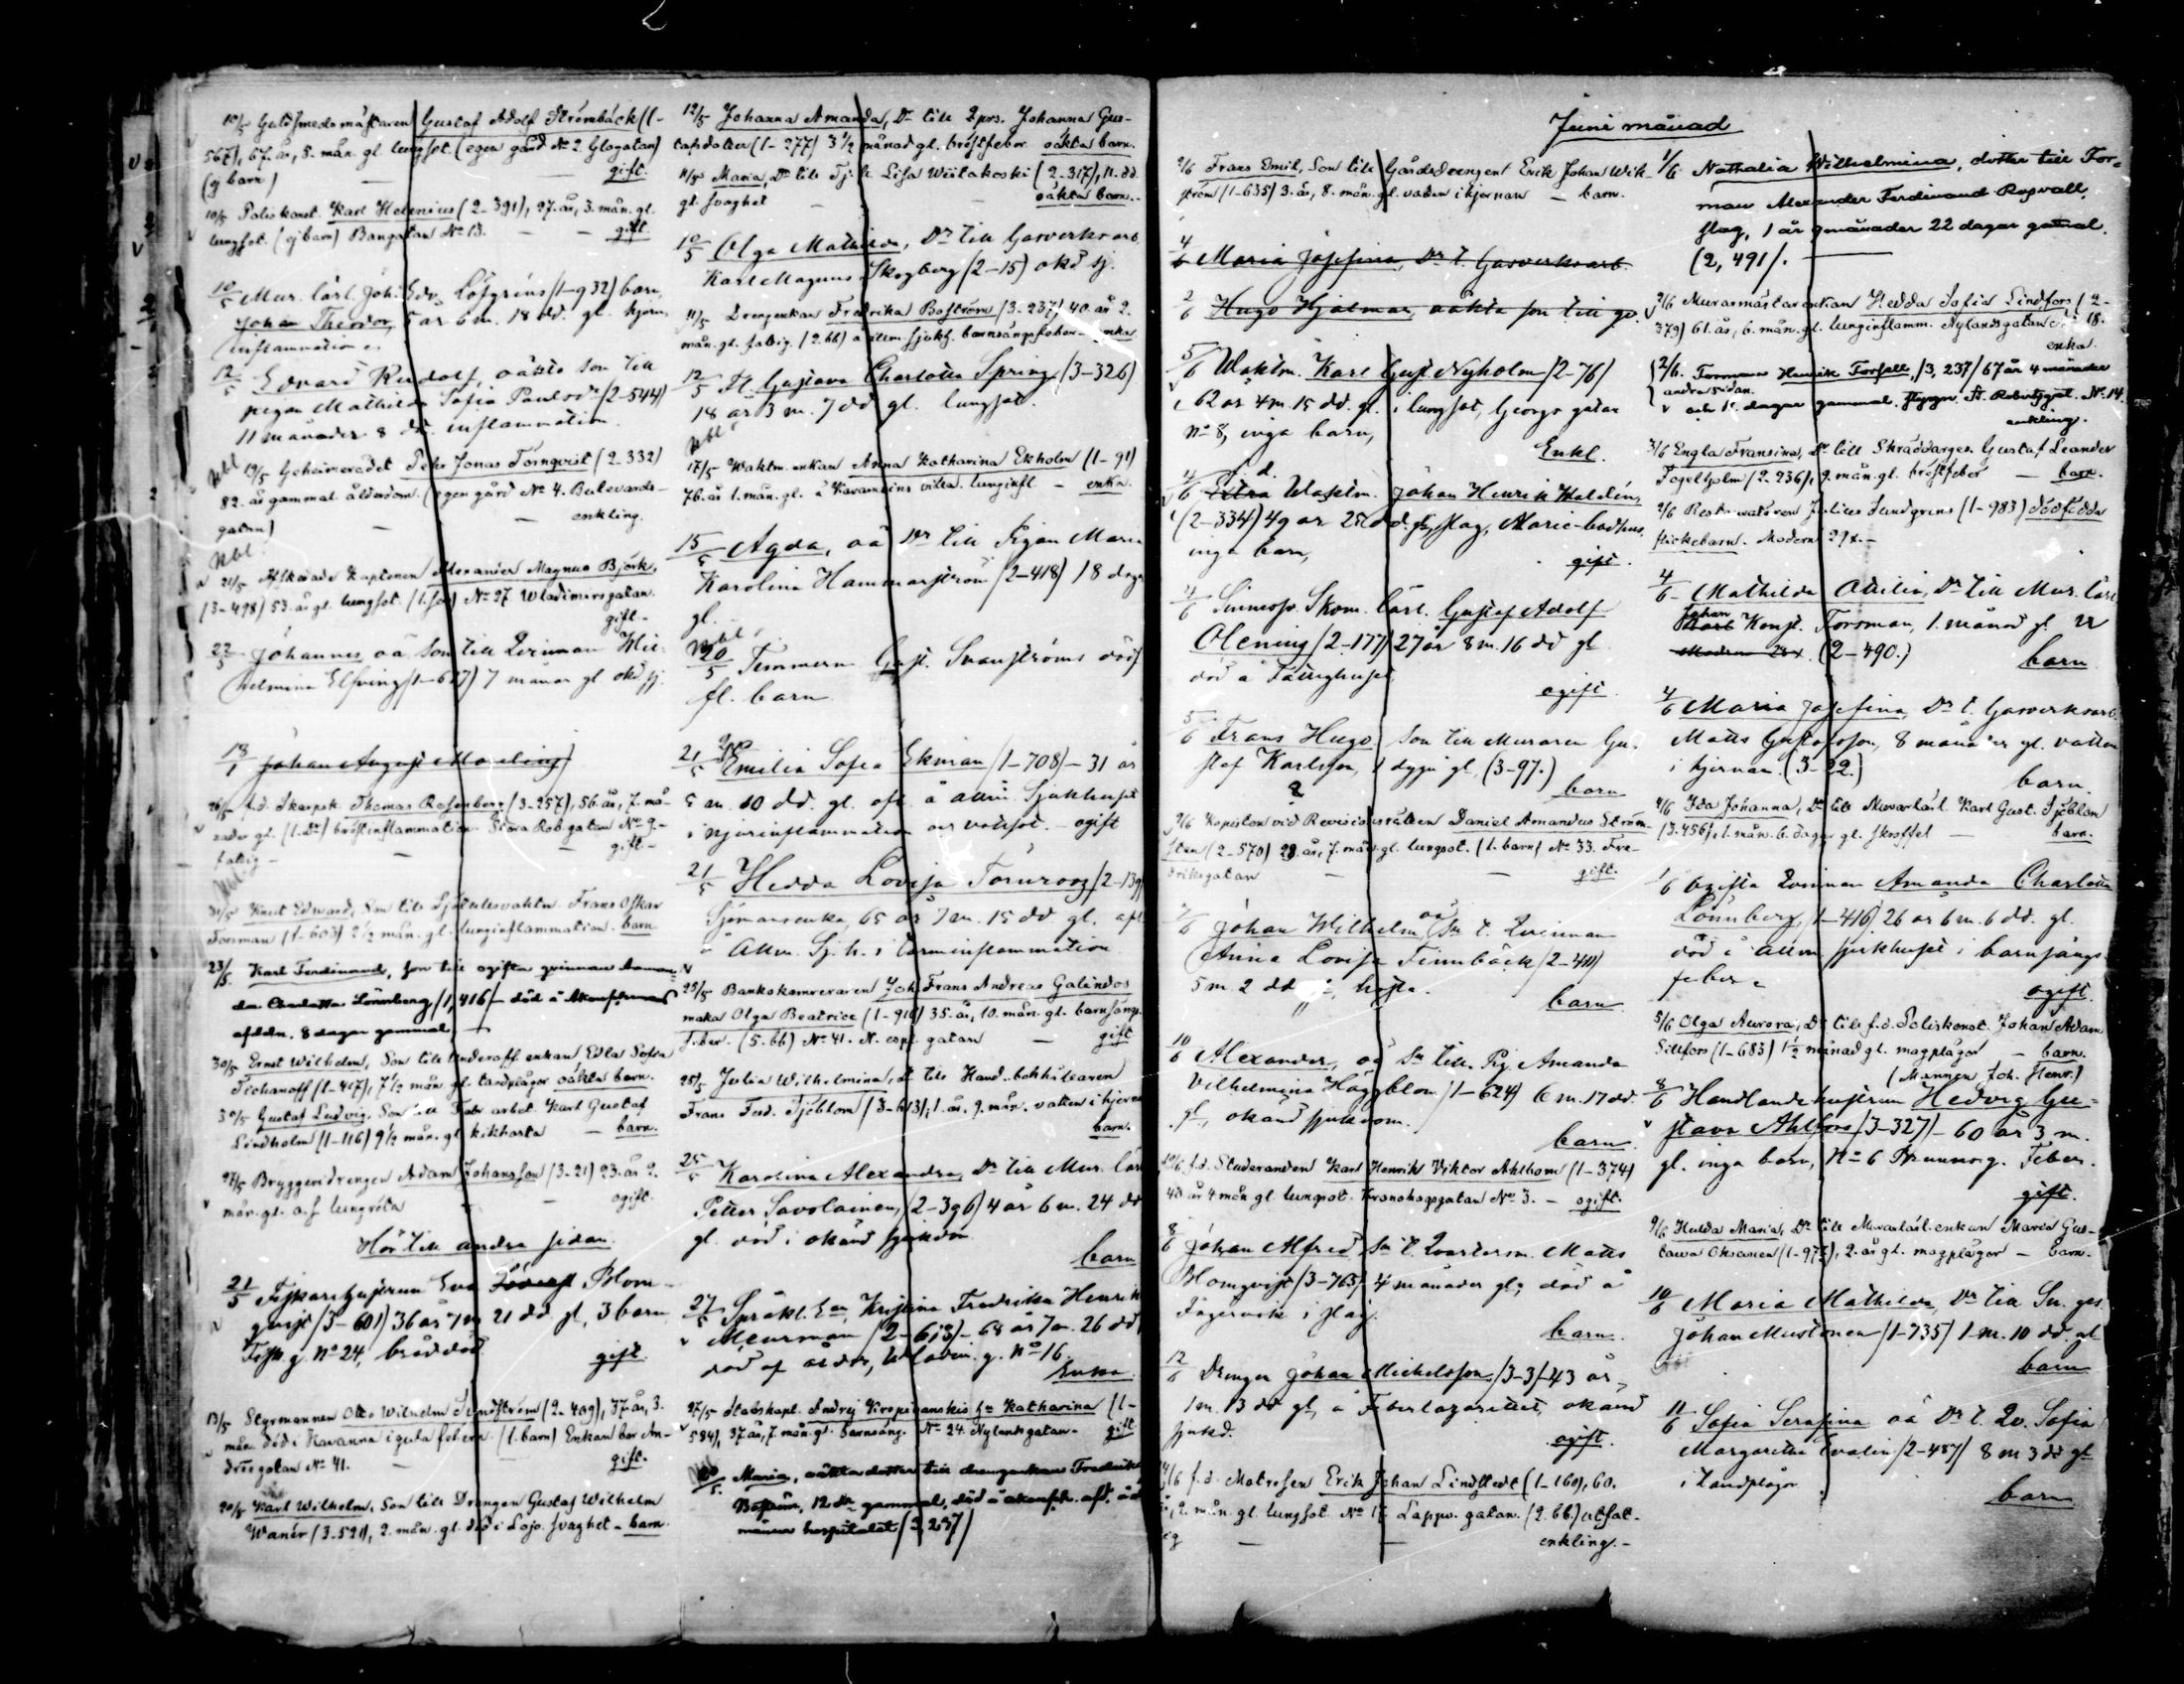 10/5 Guldsmedsmästaren Gustaf Adolf Strömbäck (1-
567), 67. år, 8. mån. gl. lungsot. (egen gård No 2 Glogatan)
(ej barn) — — gift.
10/5 Poliskonst. Karl Helenius (2-391), 27. år, 3. mån. gl.
lungsot. (ej barn) Bangatan No 13. — — gift.
10/5 Mur. lärl. Joh. Edv. Löfgréns (1-932) barn,
Johan Theodor 5 år 6 m. 18 dd. gl. hjern
inflammation.
12/5 Edvard Rudolf, oäkta son till
pigan Mathilda Sofia Paulsdr (2-544)
11 månader 8 dd. inflammation.
19/5 Geheimerådet Pehr Jonas Törnqvist (2.332)
82. år gammal ålderdom. (egen gård No 4. Bulevards-
gatan) — — enkling.
21/5 Afskedade Kaptenen Alexander Magnus Björk,
(3-498) 53. år gl. lungsot. (1. son) No 27 Wladimirsgatan.
gift.
22/5 Johannes oä. son till Qvinnan Wil-
helmina Elfving (1-617) 7 månar gl. okd sj.
13/1 Johan August Moreling
26/5 f.d. Skarpsk. Thomas Rosenberg (3-257), 56. år, 7. må-
nader gl. (1. dr) bröstinflammation. Stora Rob. gatan No 9.
fattig — — gift.
31/5 Knut Edward, Son till Sjötullsvaktm. Frans Oskar
Forsman (1-603) 2 1/2 mån. gl. lunginflammation. barn
23/5. Karl Ferdinand, son till ogifta qvinnan Aman-
da Charlotta Lönnberg (1,416) död å Akouchement
afdeln. 8 dagar gammal.
30/5 Ernst Wilhelm, Son till underoff. enkan Edla Sofia
Tichanoff (1-467), 7 1/2 mån. gl. tandplågor oäkta barn.
30/5 Gustaf Ludvig. Son till Fabr. arbet. Karl Gustaf
Lindholm (1-116) 9 1/2 mån. gl. kikhosta — barn.
27/5 Bryggeridrengen Adam Johansson (3-21) 23. år 2.
mån. gl. a.s. lungröta — ogift.
Hör till andra sidan.
21/5 Fiskarehustrun Eva Blom-
qvist (3-601) 36 år 7 m 21 dd gl, 3 barn
Fisk. g. No 24, bråddöd gift.
13/5 Styrmannen Otto Wilhelm Sundström (2-409), 37. år, 3.
mån. död i Havanna i gula febern. (1. barn) Enkan bor An-
dreegatan No 41. — — gift.
20/5 Karl Wilhelm, Son till Drengen Gustaf Wilhelm
Wanér (3.521), 2. mån. gl. död i Lojo. svaghet - barn.
12/5 Johanna Amanda, Dr till Qprs. Johanna Gus-
tafsdotter (1-277) 3 1/2 månad gl. bröstfeber oäkta barn.
11/5 Maria, Dr till Lisa Wiitakoski (2-317), 11. dd.
gl. svaghet — — oäkta barn.
10/5 Olga Mathilda, Dr till Gasverksarb.
Karl Magnus Skogberg (2-15) okd sj.
11/5 Drengenkan Fredrika Boström (3-237) 40. år 2.
mån. gl. fattig. (2. bb) å allm. sjukh. barnsängsfeber - enka
12/5 Fl. Gustava Charlotta Spring (3-326)
18 år 3 m. 7 dd gl. lungsot.
17/5 Waktm. enkan Anna Katharina Ekholm (1-91)
76. år 1. mån. gl. å Kavamtsins villa. lunginfl. - enka.
15/5 Agda, oä Dr till Pigan Maria
Karolina Hammarström (2-418) 18 dagr
gl.
20/5 Timmerm. Gust. Svanströms dödf
fl. barn
21/5 Emilia Sofia Ekman (1-708) - 31 år
5 m. 10 dd. gl. afl. å allm. Sjukhuset
i njurinflammation och vattsot. - ogift
21/5 Hedda Lovisa Törnroos (2-139)
Sjömansenka, 65 år 7 m. 15 dd gl. afl.
å Allm. Sj. h. i tarminflammation
25/5 Bankokamreraren Joh. Frans Andreas Galindos
maka Olga Beatrice (1-910) 35. år, 10. mån. gl. barnsängs
feber. (5. bb) No 41. N. espl. gatan — gift
25/5 Julia Wilhelmina, Dr till Hand. bokhållaren
Frans Ferd. Sjöblom (3-613), 1. år, 9. mån. vatten i hjernan
barn.
25/5 Karolina Alexandra, Dr till Mur. lärl
Petter Savolainen, (2-396) 4 år 6 m. 24 dd
gl. död i okänd sjukdom
barn
27/5 Språkl. Enk. Kristina Fredrika Henrik
Meurman (2-613) - 68 år 7 m. 26 dd,
död af ålder, Wladim. g. No 16.
Enka.
27/5 Stabskapt. Andrej Kropivanskis Hu Katharina (1-
584), 37 år, 7. mån. gl. barnsäng. No 24. Nylandsgatan. gift
Maria, oäkta dotter till drengenkan Fredrika
Boström, 12 dr gammal, död å akousch. afd. å all
männa hospitalet (3,237)
Juni månad
2/6 Frans Emil, Son till Gårdsdrengen Erik Johan Wik-
ström (1-635) 3. år, 8. mån. gl. vatten i hjernan — barn.
4/6 Maria Josefina, Dr t. Gasverksarb.
2/6 Hugo Hjalmar, oäkta son till qv.
5/6 Waktm. Karl Gust Nyholm (2-76)
62 år 4 m. 15 dd. gl. i lungsot, Georgs gatan
No 8, inga barn,
Enkl.
4/6 f.d. Extra Waktm. Johan Henrik Waldén,
(2-334) 49 år 25 dd. gl., slag, Marie-badhus,
inga barn,
gift.
4/6 Sinnessv. Skom. lärl. Gustaf Adolf
Olening (2-177) 27 år 8 m. 16 dd gl
död å Fattighuset
ogift.
5/6 Frans Hugo, Son till Muraren Gu-
staf Karlsson, 1 dygn gl. (3-97.)
barn
9/6 Kopisten vid Revisionsrätten Daniel Amandus Ström-
sten (2-570) 29. år, 7. mån. gl. lungsot. (1. barn) No 33. Fre-
driksgatan — — gift.
7/6 Johan Wilhelm, oä Sn t. Qvinnan
Anna Lovisa Finnbäck (2-411)
5 m. 2 dd gl, hosta.
barn
10/6 Alexander, oä Sn till Pig. Amanda
Vilhelmina Häggblom (1-624) 6 m. 17 dd.
gl, okänd sjukdom.
barn
10/6. f.d. Studeranden Karl Henrik Viktor Ahlbom (1-374)
40 år 4 mån gl lungsot. Kronohagsgatan No 3. — ogift.
8/6 Johan Alfred Sn t. Qvarterm. Matts
Blomqvist (3-763) 4 månader gl, död å
Fagervik i slag.
barn.
12/6 Drengen Johan Michelsson (3-3) - 43 år,
1 m. 13 dd gl, å Feberlazarettet, okänd
sjukd.
ogift.
11/6 f.d. Matrosen Erik Johan Lindstedt (1-160), 60.
år, 2. mån. gl. lungsot. No 17 Lappv. gatan. (2. bb.) utfat-
tig — — enkling.
1/6 Nathalia Wilhelmina, dotter till For-
man Alexander Ferdinand Roswall,
slag, 1 år 9 månader 22 dagar gammal.
(2, 491).
2/6 Murarmästarenkan Hedda Sofia Lindfors (2-
379) 61. år, 6. mån. gl. lunginflamm. Nylandsgatan No 18.
enka.
2/6. Forman Henrik Forsell, (3, 237) 67 år 4 månader
andra sidan.
och 11. dagar gammal. St. Robertsgat. No 14.
enkling.
3/6 Engla Fransina, Dr till Skräddareges. Gustaf Leander
Fogelholm (2-236), 9. mån. gl. bröstfeber — barn.
2/6 Restauratören Julius Lundgrens (1-983) dödfödda
flickebarn. Modern 29 år.
4/6 Mathilda Otilia, Dr till Mur. lärl
Johan Konst. Forsman, 1. månad gl.
(2-490.) barn
4/6 Maria Josefina Dr t. Gasverksarb.
Matts Gustafsson, 8 månader gl. vatten
i hjernan (3-22.)
barn.
4/6 Ida Johanna, Dr till Murarlärl. Karl Gust. Sjöblom
(3-456), 1. mån. 6. dagar gl. skroflel — barn.
6 Ogifta Qvinnan Amanda Charlotta
Lönnberg, (1-416) 26 år 6 m. 6 dd. gl.
död å allm. sjukhuset i barnsängs-
feber.
ogift.
5/6 Olga Aurora, Dr till f.d. Poliskonst. Johan Adam
Sillfors (1-683) 1 1/2 månad gl. magplågor — barn.
(Mannen Joh. Henr.)
8/6 Handlandehustrun Hedvig Gu-
stava Ahlfors (3-327) - 60 år 3 m.
gl. inga barn, No 6 Brunnsg. Feber.
gift.
9/6 Hulda Maria, Dr till Murarlärl. enkan Maria Gus-
tava Oksanen (1-975), 2. år gl. magplågor — barn.
10/6 Maria Mathilda, Dr till Sn. ges.
Johan Mustonen (1-735) 1 m. 10 dd. gl
barn
11/6 Sofia Serafina oä Dr t. Qv. Sofia
Margaretha Evalin (2-487) 8 m 3 dd gl
i tandplågor
barn